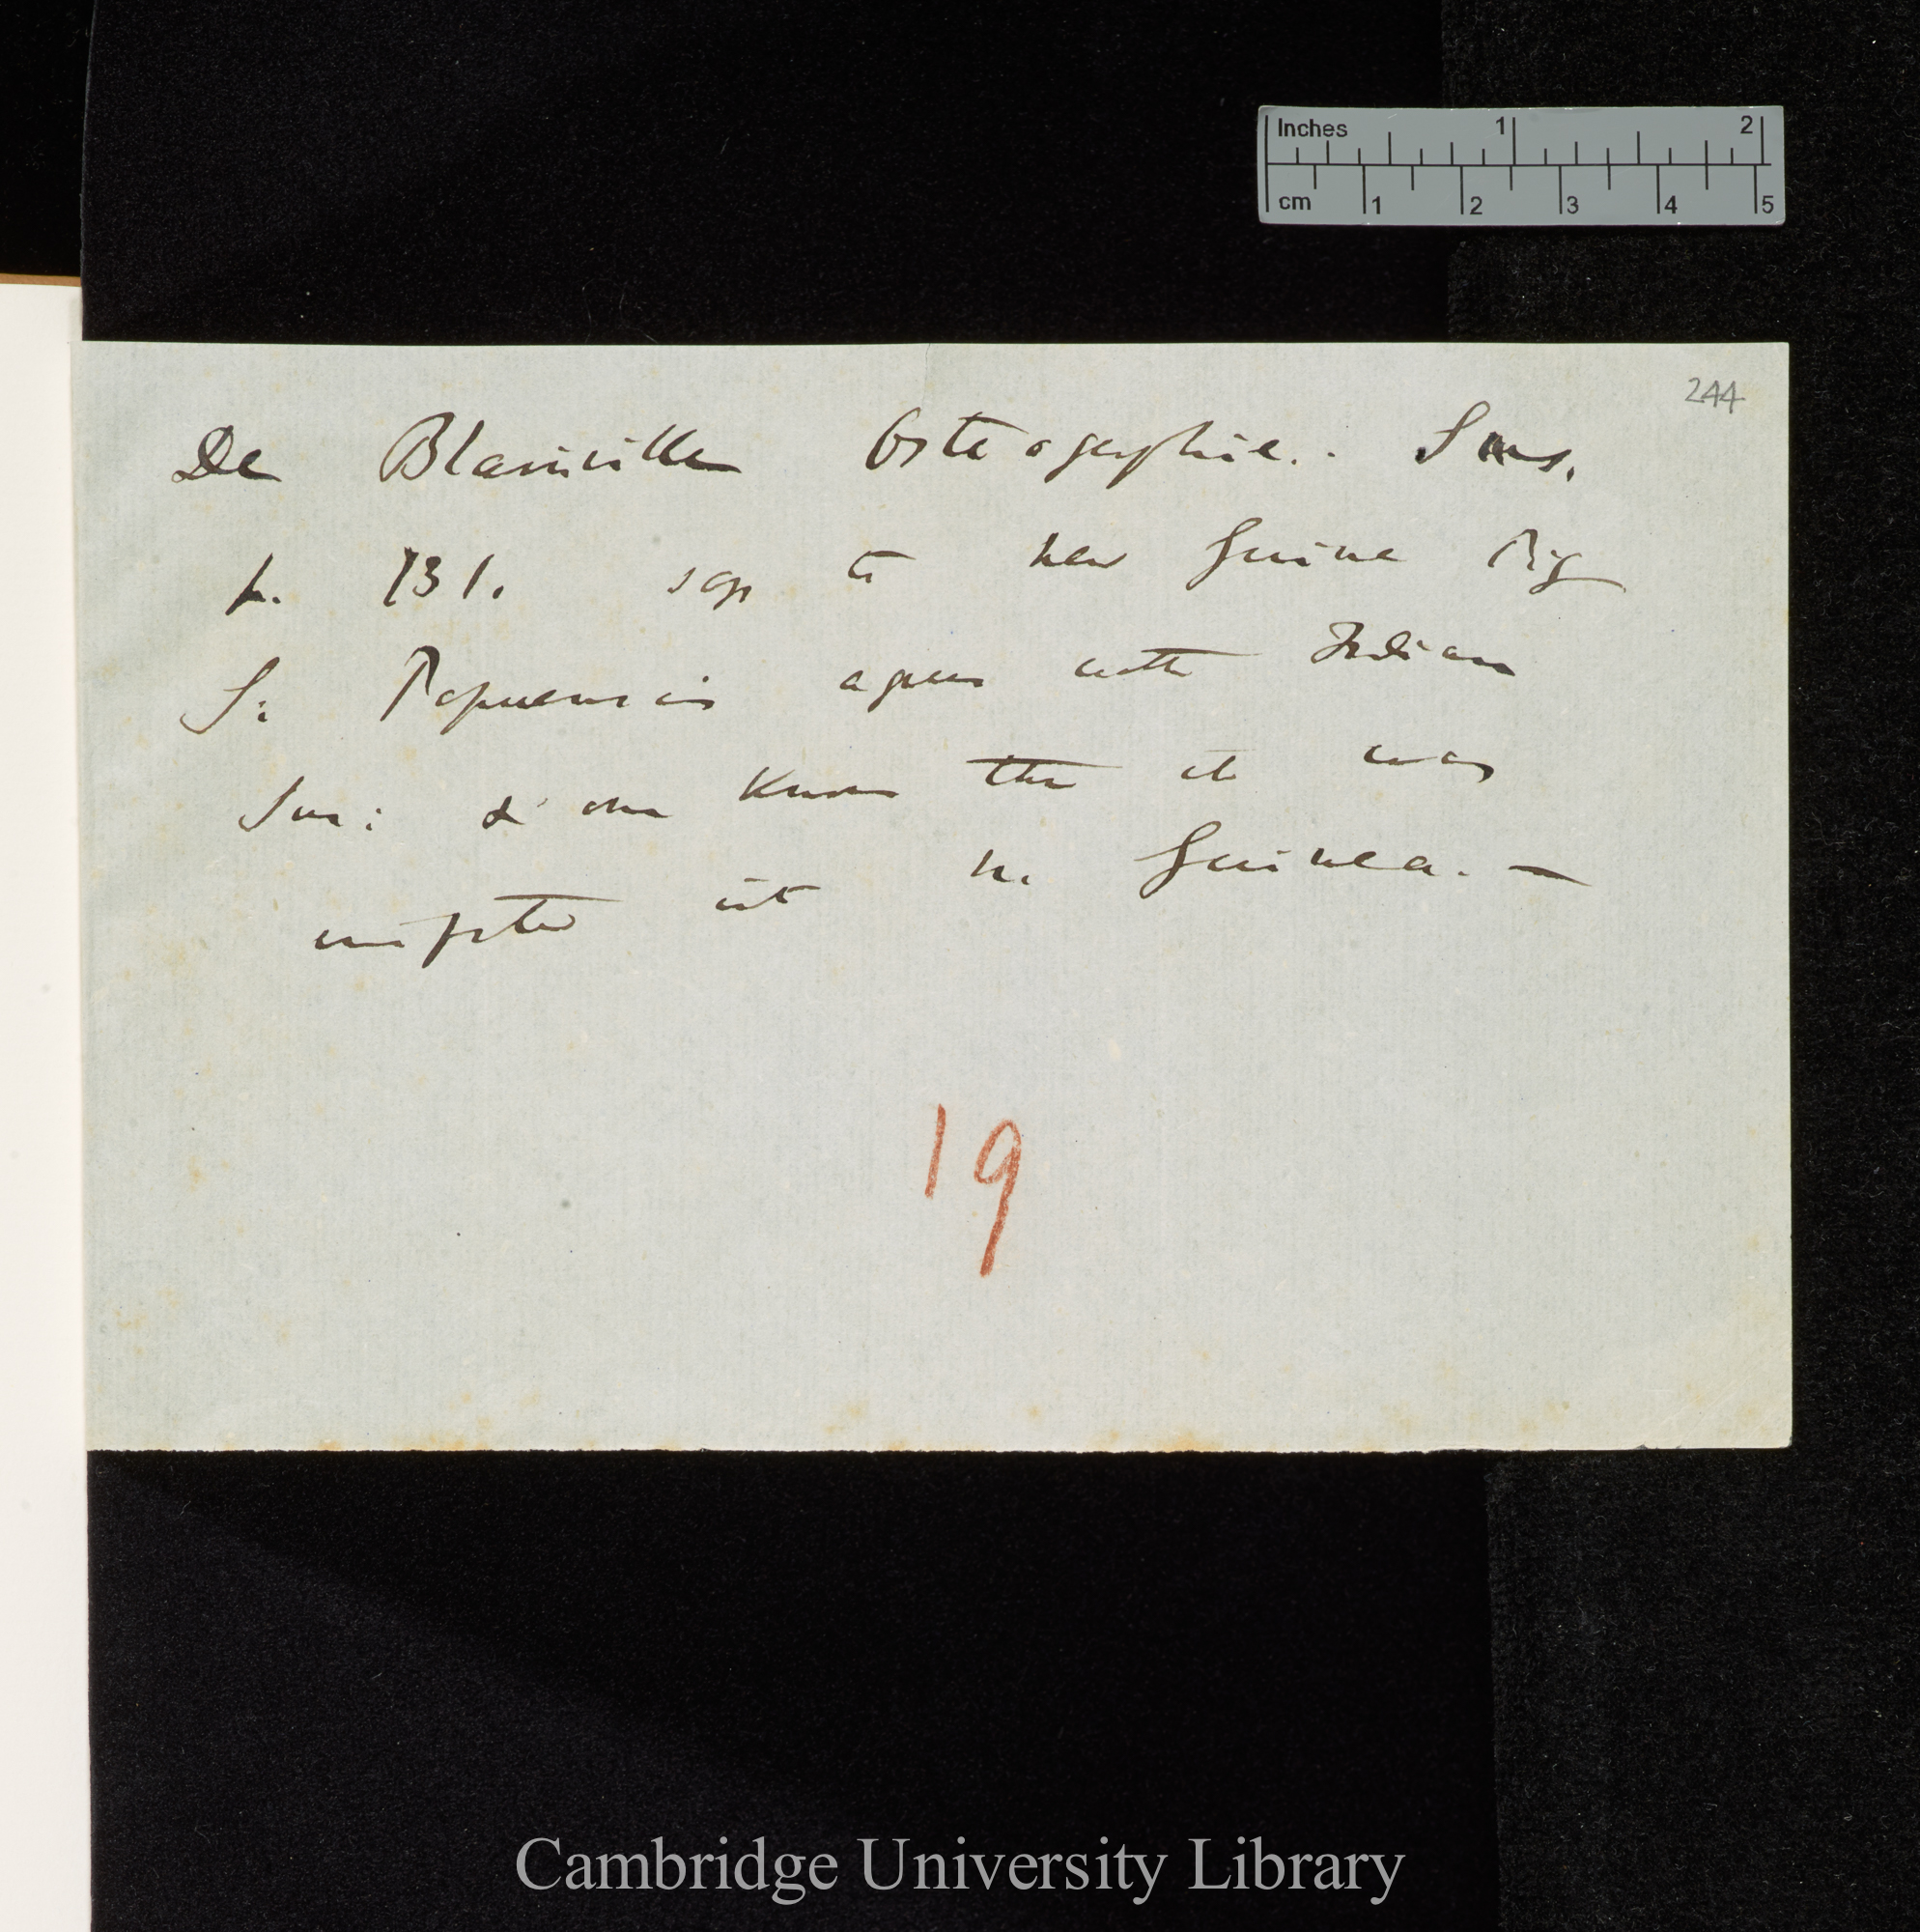 Inches 1 2
cm 1 2 3 4 5
244
De Blainville Osteographie.. Sus.
p. 131. says the New Guinea Pig
S. Papuensis agrees with Indian
Sus: & one knows that it was
imported into N. Guinea. —
19
Cambridge University Library